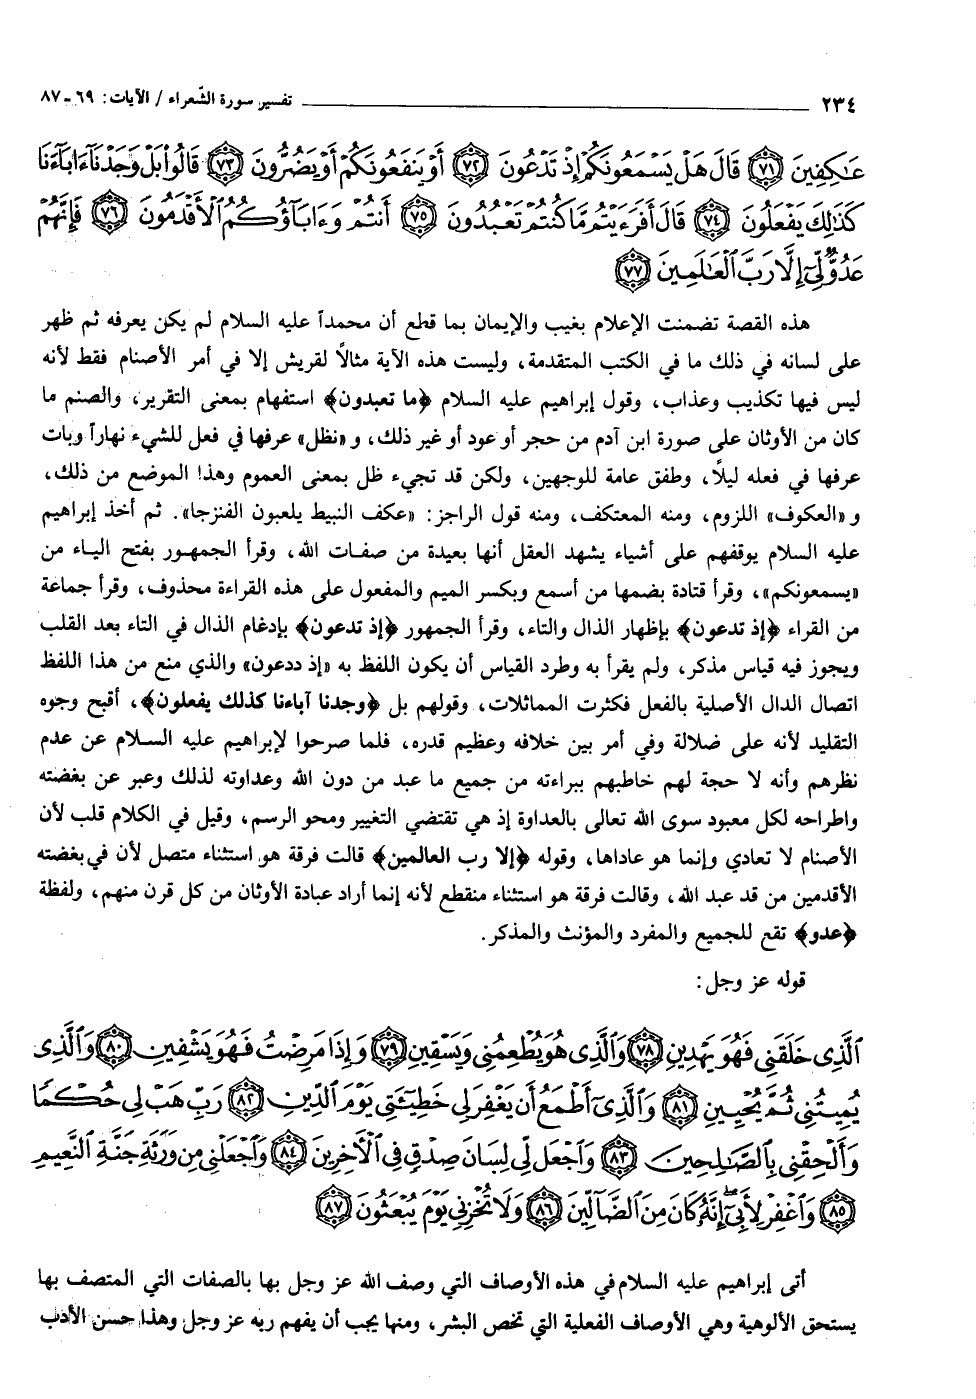 ٢٣٤ تفسير سورة الشعراء / الآيات: ٦٩ - ٨٧
عَٰكِفِينَ ٧١ قَالَ هَلْ يَسْمَعُونَكُمْ إِذْ تَدْعُونَ ٧٢ أَوْ يَنفَعُونَكُمْ أَوْ يَضُرُّونَ ٧٣ قَالُوا۟ بَلْ وَجَدْنَآ ءَابَآءَنَا
كَذَٰلِكَ يَفْعَلُونَ ٧٤ قَالَ أَفَرَءَيْتُم مَّا كُنتُمْ تَعْبُدُونَ ٧٥ أَنتُمْ وَءَابَآؤُكُمُ ٱلْأَقْدَمُونَ ٧٦ فَإِنَّهُمْ
عَدُوٌّ لِّىٓ إِلَّا رَبَّ ٱلْعَٰلَمِينَ ٧٧
هذه القصة تضمنت الإعلام بغيب والإيمان بما قطع أن محمداً عليه السلام لم يكن يعرفه ثم ظهر
على لسانه في ذلك ما في الكتب المتقدمة، وليست هذه الآية مثالاً لقريش إلا في أمر الأصنام فقط لأنه
ليس فيها تكذيب وعذاب، وقول إبراهيم عليه السلام ﴿ما تعبدون﴾ استفهام بمعنى التقرير، والصنم ما
كان من الأوثان على صورة ابن آدم من حجر أو عود أو غير ذلك، و «نظل» عرفها في فعل للشيء نهاراً وبات
عرفها في فعله ليلاً، وطفق عامة للوجهين، ولكن قد تجيء ظل بمعنى العموم وهذا الموضع من ذلك،
و «العكوف» اللزوم، ومنه المعتكف، ومنه قول الراجز: «عكف النبيط يلعبون الفنزجا». ثم أخذ إبراهيم
عليه السلام يوقفهم على أشياء يشهد العقل أنها بعيدة من صفات الله، وقرأ الجمهور بفتح الياء من
«يسمعونكم»، وقرأ قتادة بضمها من أسمع وبكسر الميم والمفعول على هذه القراءة محذوف، وقرأ جماعة
من القراء ﴿إذ تدعون﴾ بإظهار الذال والتاء، وقرأ الجمهور ﴿إذ تدعون﴾ بإدغام الذال في التاء بعد القلب
ويجوز فيه قياس مذكر، ولم يقرأ به وطرد القياس أن يكون اللفظ به «إذ ددعون» والذي منع من هذا اللفظ
اتصال الدال الأصلية بالفعل فكثرت المماثلات، وقولهم بل ﴿وجدنا آباءنا كذلك يفعلون﴾، أقبح وجوه
التقليد لأنه على ضلالة وفي أمر بين خلافه وعظيم قدره، فلما صرحوا لإبراهيم عليه السلام عن عدم
نظرهم وأنه لا حجة لهم خاطبهم ببراءته من جميع ما عبد من دون الله وعداوته لذلك وعبر عن بغضته
واطراحه لكل معبود سوى الله تعالى بالعداوة إذ هي تقتضي التغيير ومحو الرسم، وقيل في الكلام قلب لأن
الأصنام لا تعادي وإنما هو عاداها، وقوله ﴿إلا رب العالمين﴾ قالت فرقة هو استثناء متصل لأن في بغضته
الأقدمين من قد عبد الله، وقالت فرقة هو استثناء منقطع لأنه إنما أراد عبادة الأوثان من كل قرن منهم، ولفظة
﴿عدو﴾ تقع للجميع والمفرد والمؤنث والمذكر.
قوله عز وجل:
ٱلَّذِى خَلَقَنِى فَهُوَ يَهْدِينِ ٧٨ وَٱلَّذِى هُوَ يُطْعِمُنِى وَيَسْقِينِ ٧٩ وَإِذَا مَرِضْتُ فَهُوَ يَشْفِينِ ٨٠ وَٱلَّذِى
يُمِيتُنِى ثُمَّ يُحْيِينِ ٨١ وَٱلَّذِىٓ أَطْمَعُ أَن يَغْفِرَ لِى خَطِيٓـَٔتِى يَوْمَ ٱلدِّينِ ٨٢ رَبِّ هَبْ لِى حُكْمًا
وَأَلْحِقْنِى بِٱلصَّٰلِحِينَ ٨٣ وَٱجْعَل لِّى لِسَانَ صِدْقٍ فِى ٱلْـَٔاخِرِينَ ٨٤ وَٱجْعَلْنِى مِن وَرَثَةِ جَنَّةِ ٱلنَّعِيمِ
٨٥ وَٱغْفِرْ لِأَبِىٓ إِنَّهُۥ كَانَ مِنَ ٱلضَّآلِّينَ ٨٦ وَلَا تُخْزِنِى يَوْمَ يُبْعَثُونَ ٨٧
أتى إبراهيم عليه السلام في هذه الأوصاف التي وصف الله عز وجل بها بالصفات التي المتصف بها
يستحق الألوهية وهي الأوصاف الفعلية التي تخص البشر، ومنها يجب أن يفهم ربه عز وجل وهذا حسن الأدب